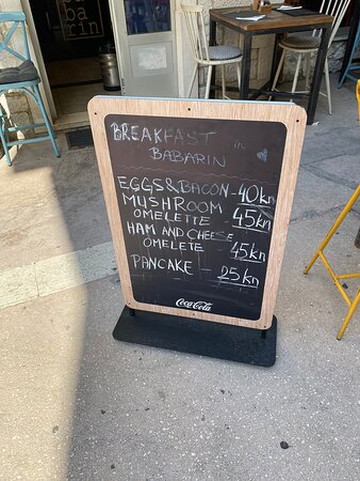 ba
barin
BREAKFAST in
BABARIN
EGGS&BACON-40kn
MUSHROOM
OMELETTE 45kn
HAM AND CHEESE
OMELETE 45kn
PANCAKE - 25kn
Coca-Cola